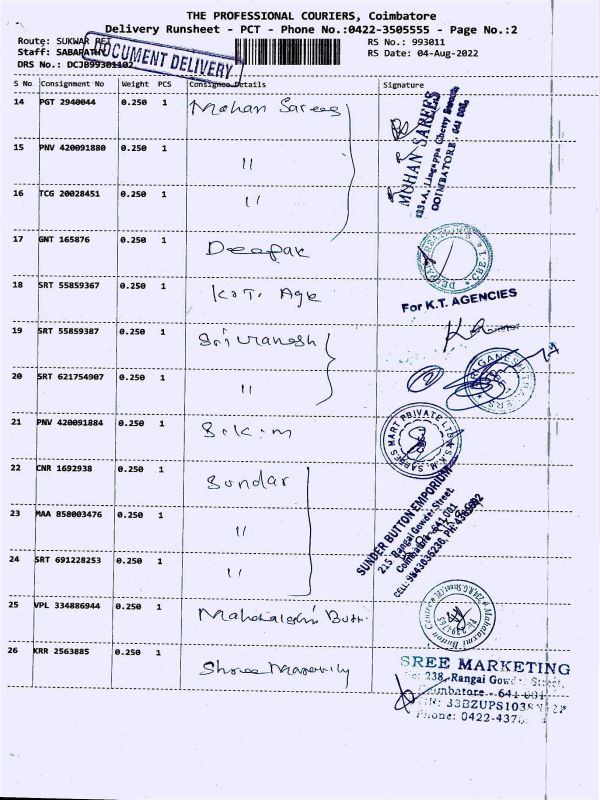 THE PROFESSIONAL COURIERS, Coimbatore
Delivery Runsheet - PCT - Phone No.:0422-3505555 - Page No.:2
Route: SUKWAR PET RS No.: 993011
Staff: SABARATHY RS Date: 04-Aug-2022
DRS No.: DCJB99301102
DOCUMENT DELIVERY
S No Consignment No Weight PCS Consignee Details Signature
14 PGT 2940044 0.250 1 Mohan Sarees
15 PNV 420091880 0.250 1 "
16 TCG 20028451 0.250 1 "
MOHAN SAREES
COIMBATORE, 641 001
17 GNT 165876 0.250 1 Deepak
18 SRT 55859367 0.250 1 K.T. Age
For K.T. AGENCIES
19 SRT 55859387 0.250 1 Sri Ganesh
20 SRT 621754907 0.250 1 "
21 PNV 420091884 0.250 1 S.K.M
SAREES MART PRIVATE LTD S.K.M.
22 CNR 1692938 0.250 1 Sundar
23 MAA 858003476 0.250 1 "
24 SRT 691228253 0.250 1 "
SUNDER BUTTON EMPORIUM
215, Rangai Gowder Street,
Coimbatore-641 001
25 VPL 334886944 0.250 1 Mahalakshmi Butt
Mahalaxmi Button Centre
26 KRR 2563885 0.250 1 Shree
SREE MARKETING
238, Rangai Gowder Street,
Coimbatore - 641 001
Phone: 0422-437